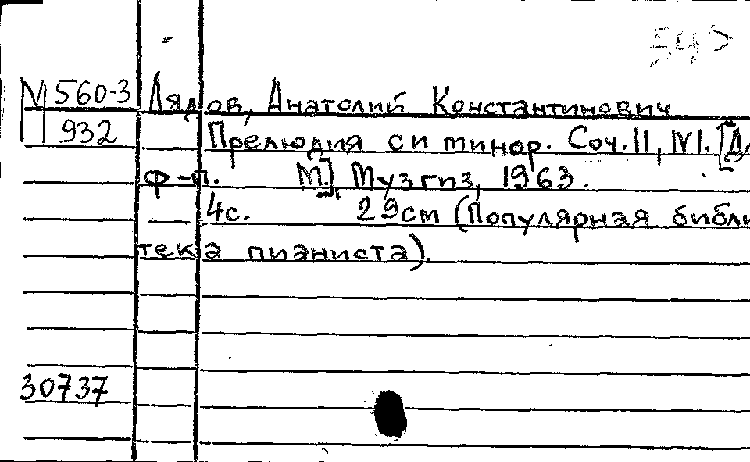 560-3 Лядов, Анатолий Константинович
932 Прелюдия си минор. Соч.11, №1. [Дл
ф-п. М.] Музгиз, 1963.
4с. 29см (Популярная библи
тека пианиста).
30737